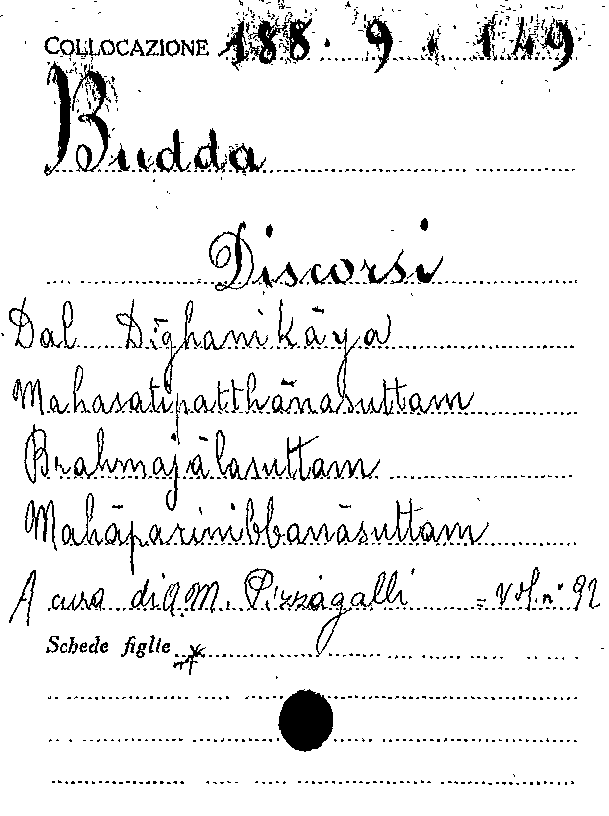 COLLOCAZIONE 188. 9. 149
Budda
Discorsi
Dal Dīghanikāya
Mahasatipatthānasuttam
Brahmajālasuttam
Mahāparinibbanāsuttam
A cura di A. M. Pizzagalli = Vol. n° 92
Schede figlie